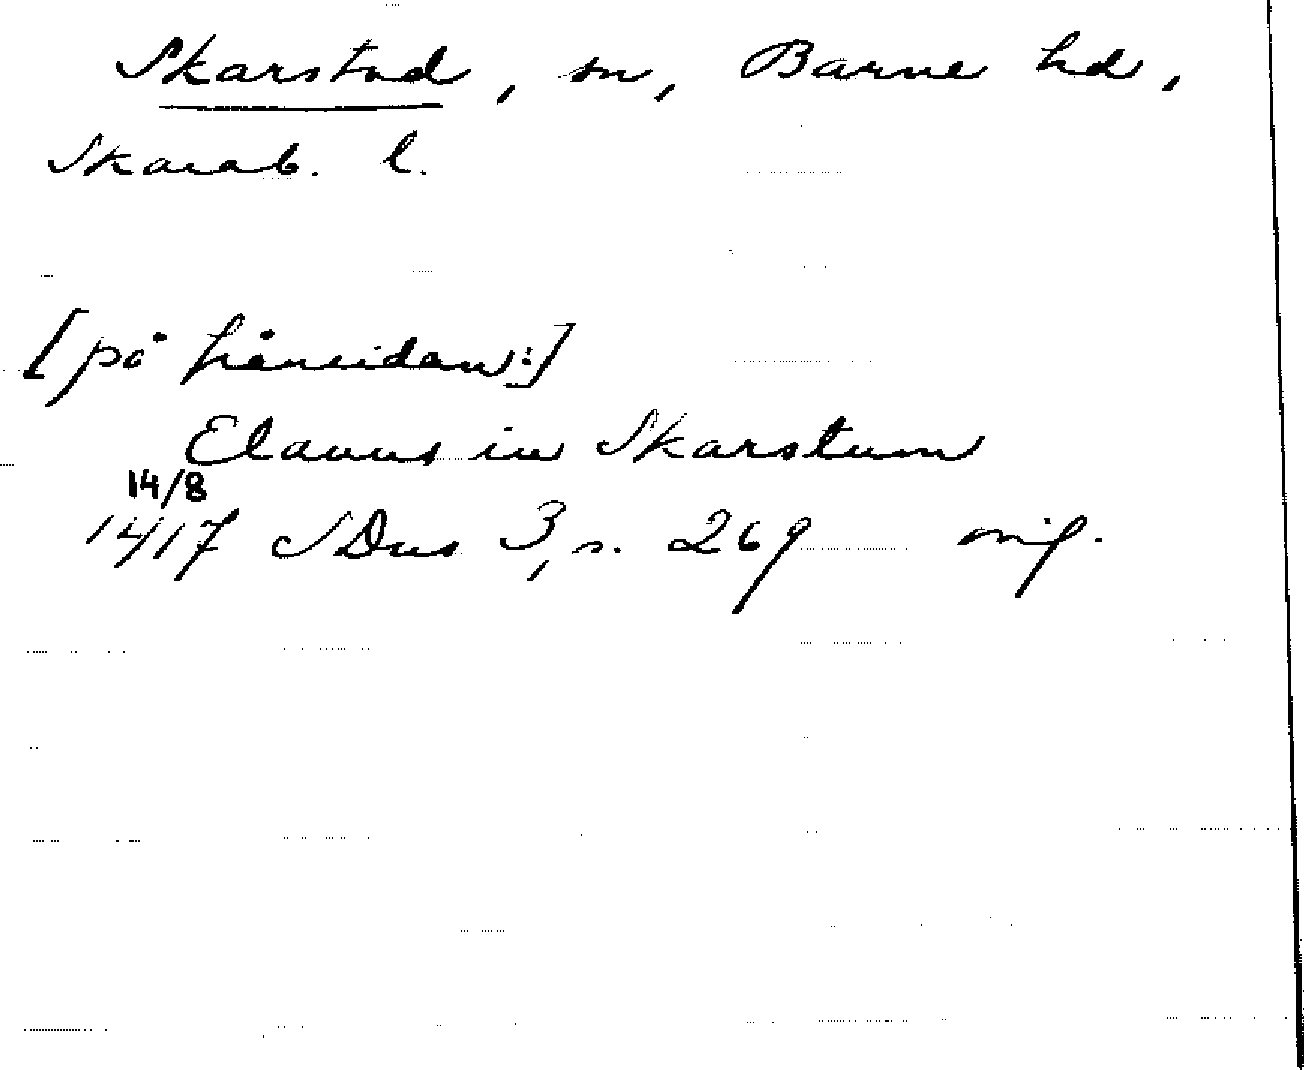 Skarstad, sn, Barne hd,
Skarab. l.
[på frånsidan:]
Elavus in Skarstum
14/8
1417 SDns 3, s. 269 orig.